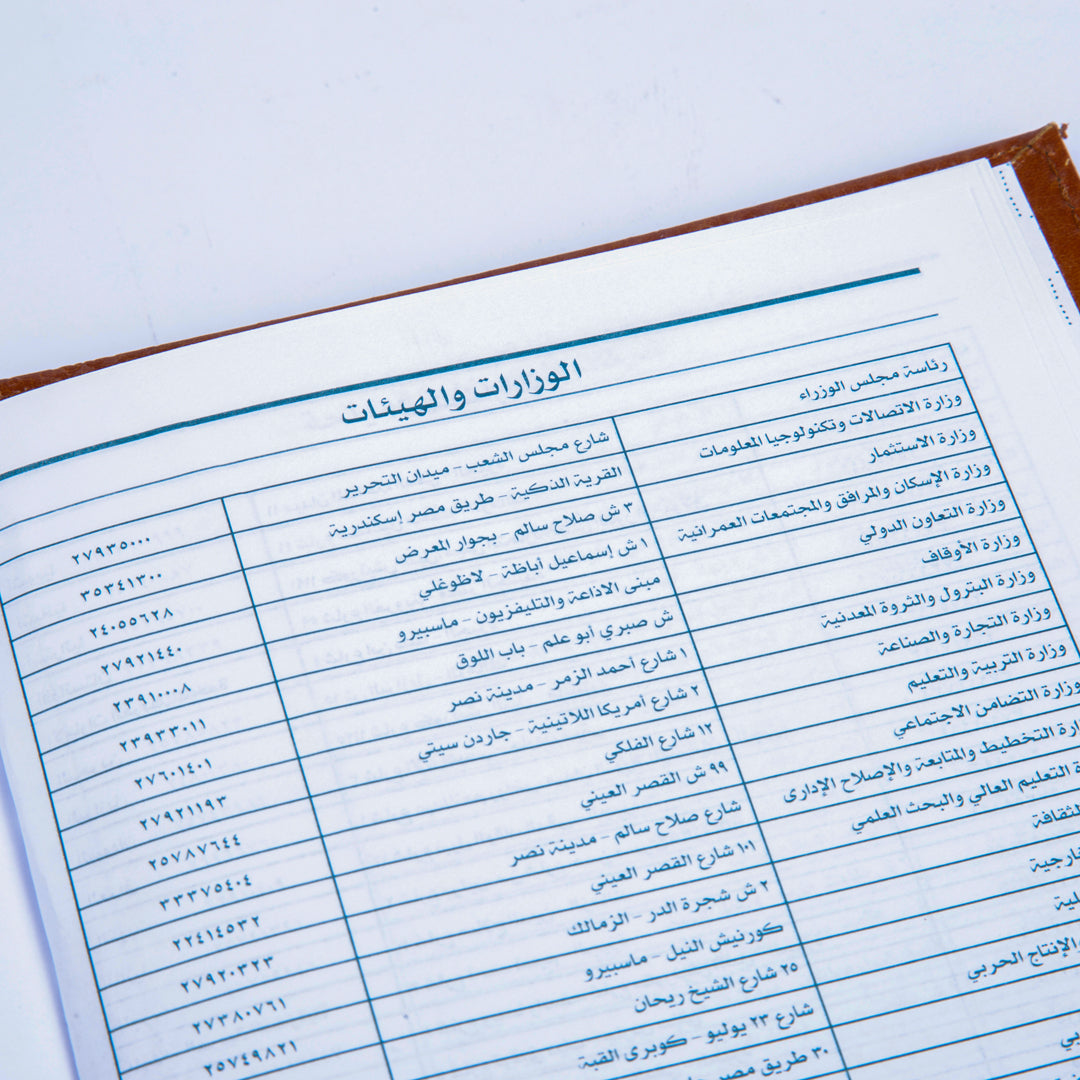 الوزارات والهيئات
رئاسة مجلس الوزراء شارع مجلس الشعب - ميدان التحرير ٢٧٩٣٥٠٠٠
وزارة الاتصالات وتكنولوجيا المعلومات القرية الذكية - طريق مصر إسكندرية ٣٥٣٤١٣٠٠
وزارة الاستثمار ٣ ش صلاح سالم - بجوار المعرض ٢٤٠٥٥٦٢٨
وزارة الإسكان والمرافق والمجتمعات العمرانية ١ ش إسماعيل أباظة - لاظوغلي ٢٧٩٢١٤٤٠
وزارة التعاون الدولي مبنى الاذاعة والتليفزيون - ماسبيرو ٢٣٩١٠٠٠٨
وزارة الأوقاف ش صبري أبو علم - باب اللوق ٢٣٩٣٣٠١١
وزارة البترول والثروة المعدنية ١ شارع أحمد الزمر - مدينة نصر ٢٧٦٠١٤٠١
وزارة التجارة والصناعة ٢ شارع أمريكا اللاتينية - جاردن سيتي ٢٧٩٢١١٩٣
وزارة التربية والتعليم ١٢ شارع الفلكي ٢٥٧٨٧٦٤٤
وزارة التضامن الاجتماعي ٩٩ ش القصر العيني ٣٣٣٧٥٤٠٤
التخطيط والمتابعة والإصلاح الإدارى شارع صلاح سالم - مدينة نصر ٢٢٤١٤٥٣٢
التعليم العالي والبحث العلمي ١٠١ شارع القصر العيني ٢٧٩٢٠٣٢٣
الثقافة ٢ ش شجرة الدر - الزمالك ٢٧٣٨٠٧٦١
كورنيش النيل - ماسبيرو ٢٥٧٤٩٨٢١
٢٥ شارع الشيخ ريحان
والإنتاج الحربي شارع ٢٣ يوليو - كوبرى القبة
٣٠ طريق مصر